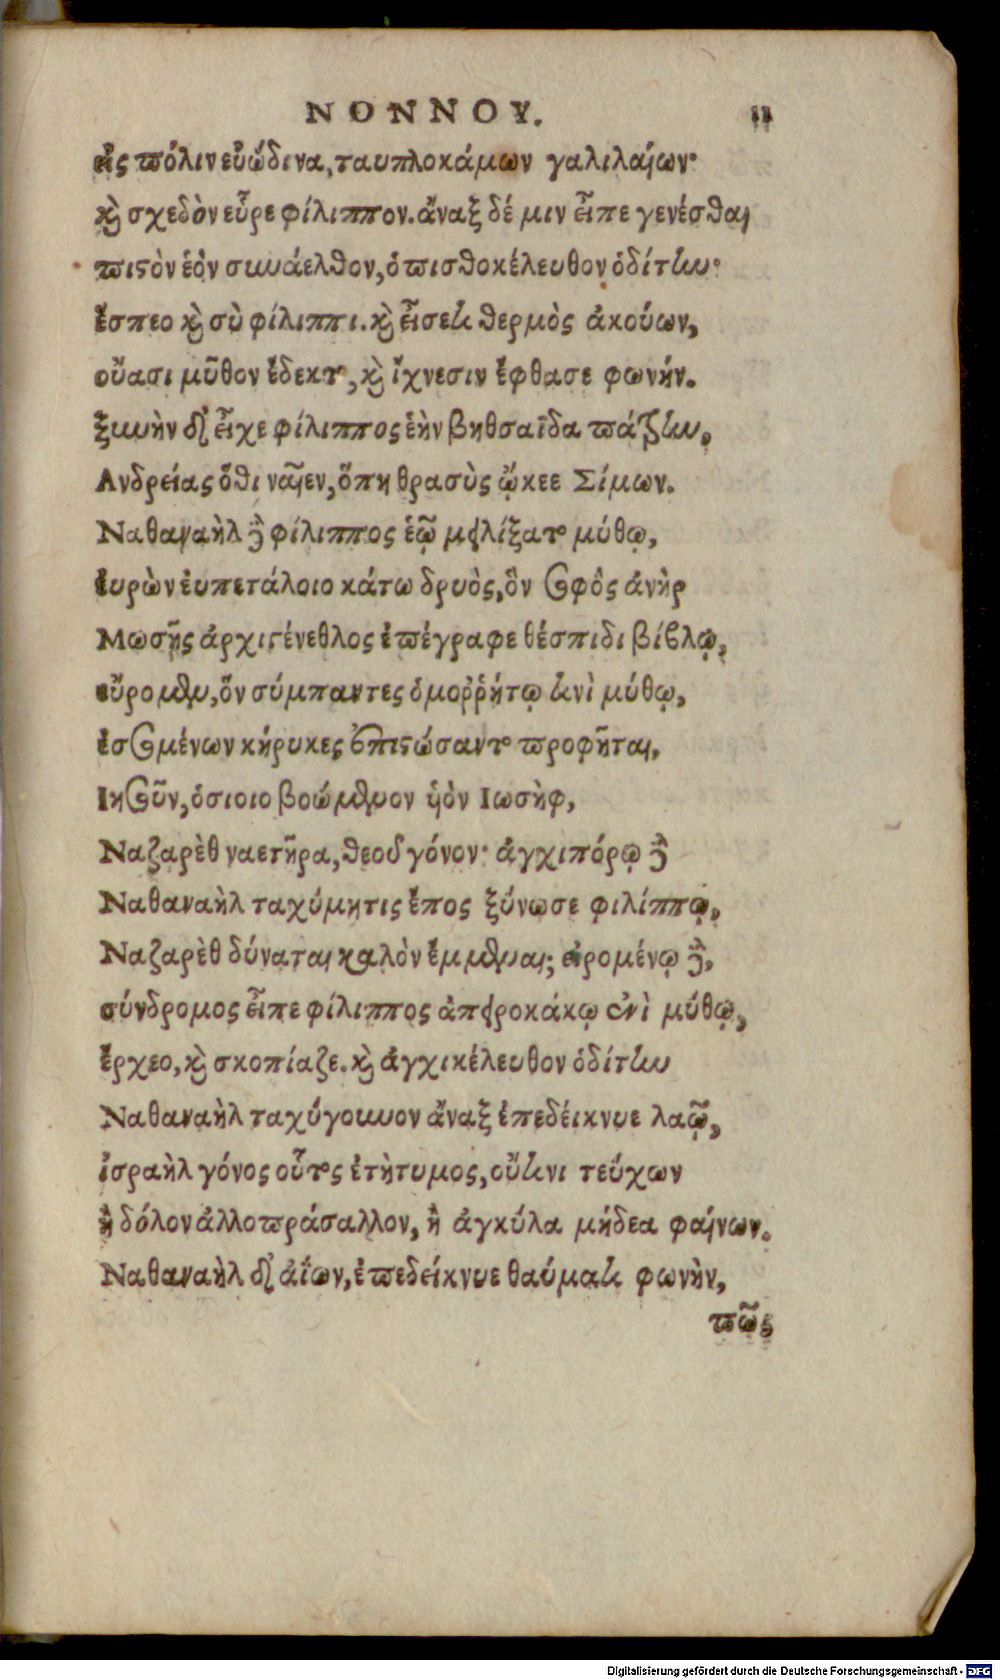 ΝΟΝΝΟΥ. 11
εἰς πόλιν εὐώδινα, τανπλοκάμων γαλιλαίων·
καὶ σχεδὸν εὗρε φίλιππον. ἄναξ δέ μιν εἶπε γενέσθαι
πιστὸν ἑὸν συνάελθον, ὀπισθοκέλευθον ὁδίτην·
ἕσπεο καὶ σὺ φίλιππε. καὶ εἰσέτι θερμὸς ἀκούων,
οὔασι μῦθον ἔδεκτο, καὶ ἴχνεσιν ἔφθασε φωνήν.
ξυνὴν δ' εἶχε φίλιππος ἑὴν βηθσαΐδα πάτρην.
Ανδρείας ὅθι ναῖεν, ὅπη θρασὺς ᾤκεε Σίμων.
Ναθαναὴλ δὲ φίλιππος ἑῷ μειλίξατο μύθῳ,
εὑρὼν εὐπετάλοιο κάτω δρυὸς, ὃν σοφὸς ἀνὴρ
Μωσῆς ἀρχιγένεθλος ἐπέγραφε θέσπιδι βίβλῳ,
εὕρομεν, ὅν σύμπαντες ὁμοῤῥήτῳ ἑνὶ μύθῳ,
ἐσσομένων κήρυκες ἐπιστώσαντο προφῆται,
Ιησοῦν, ὁσίοιο βοώμενον υἱὸν Ιωσὴφ,
Ναζαρὲθ ναετῆρα, θεοῦ γόνον· ἀγχιπόρῳ δὲ
Ναθαναὴλ ταχύμητις ἔπος ξύνωσε φιλίππῳ,
Ναζαρὲθ δύναται καλὸν ἔμμεναι; εἰρομένῳ δὲ,
σύνδρομος εἶπε φίλιππος ἀπειροκάκῳ ἐνὶ μύθῳ,
ἔρχεο, καὶ σκοπίαζε. καὶ ἀγχικέλευθον ὁδίτην
Ναθαναὴλ ταχύγουνον ἄναξ ἐπεδείκνυε λαῷ,
ἰσραὴλ γόνος οὗτος ἐτήτυμος, οὔτινι τεύχων
ἢ δόλον ἀλλοπρόσαλλον, ἢ ἀγκύλα μήδεα φαίνων.
Ναθαναὴλ δ' ἀΐων, ἐπεδείκνυε θαύματι φωνὴν,
πῶς
Digitalisierung gefördert durch die Deutsche Forschungsgemeinschaft - DFG